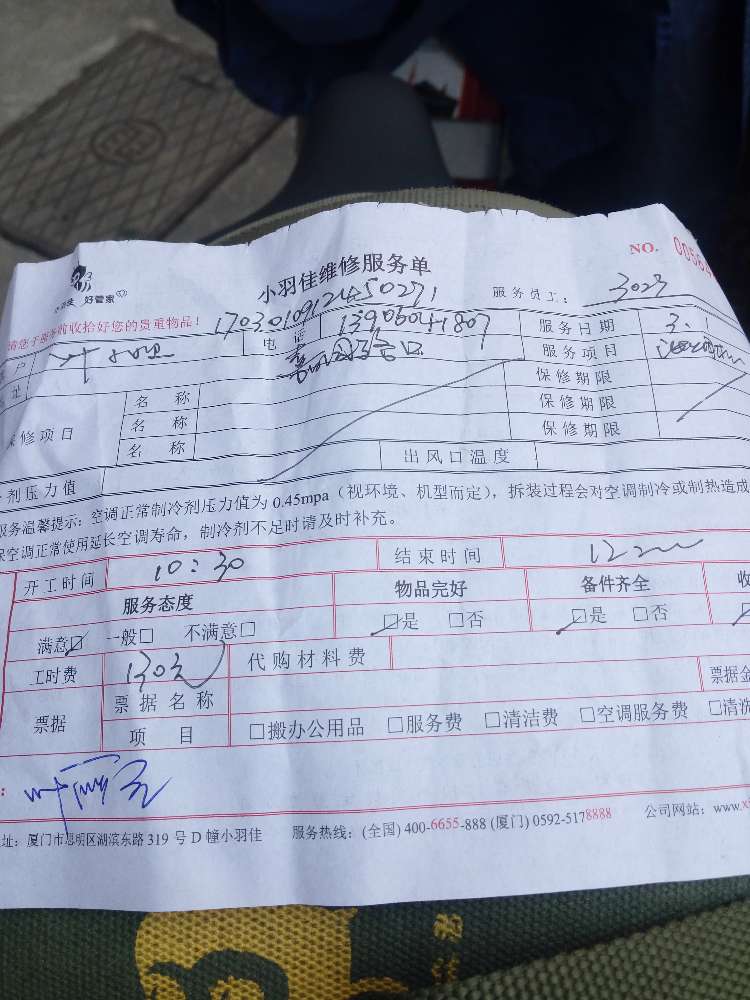 好管家
小羽佳维修服务单
NO. 00564
服务员工： 3023
请您于服务前收拾好您的贵重物品！ 170301091245027 1
户 叶 电话 13906041807 服务日期 3.1
址 服务项目
保修项目 名称 保修期限
名称 保修期限
名称 保修期限
剂压力值 出风口温度
服务温馨提示：空调正常制冷剂压力值为 0.45mpa（视环境、机型而定），拆装过程会对空调制冷或制热造成
保空调正常使用延长空调寿命，制冷剂不足时请及时补充。
开工时间 10:30 结束时间 12
服务态度 物品完好 备件齐全 收
满意□ 一般□ 不满意□ □是 □否 □是 □否
工时费 130元 代购材料费
票据 票据名称 票据金
项目 □搬办公用品 □服务费 □清洁费 □空调服务费 □清洗
址：厦门市思明区湖滨东路 319 号 D 幢小羽佳 服务热线：(全国) 400-6655-888 (厦门) 0592-5178888 公司网站：www.x